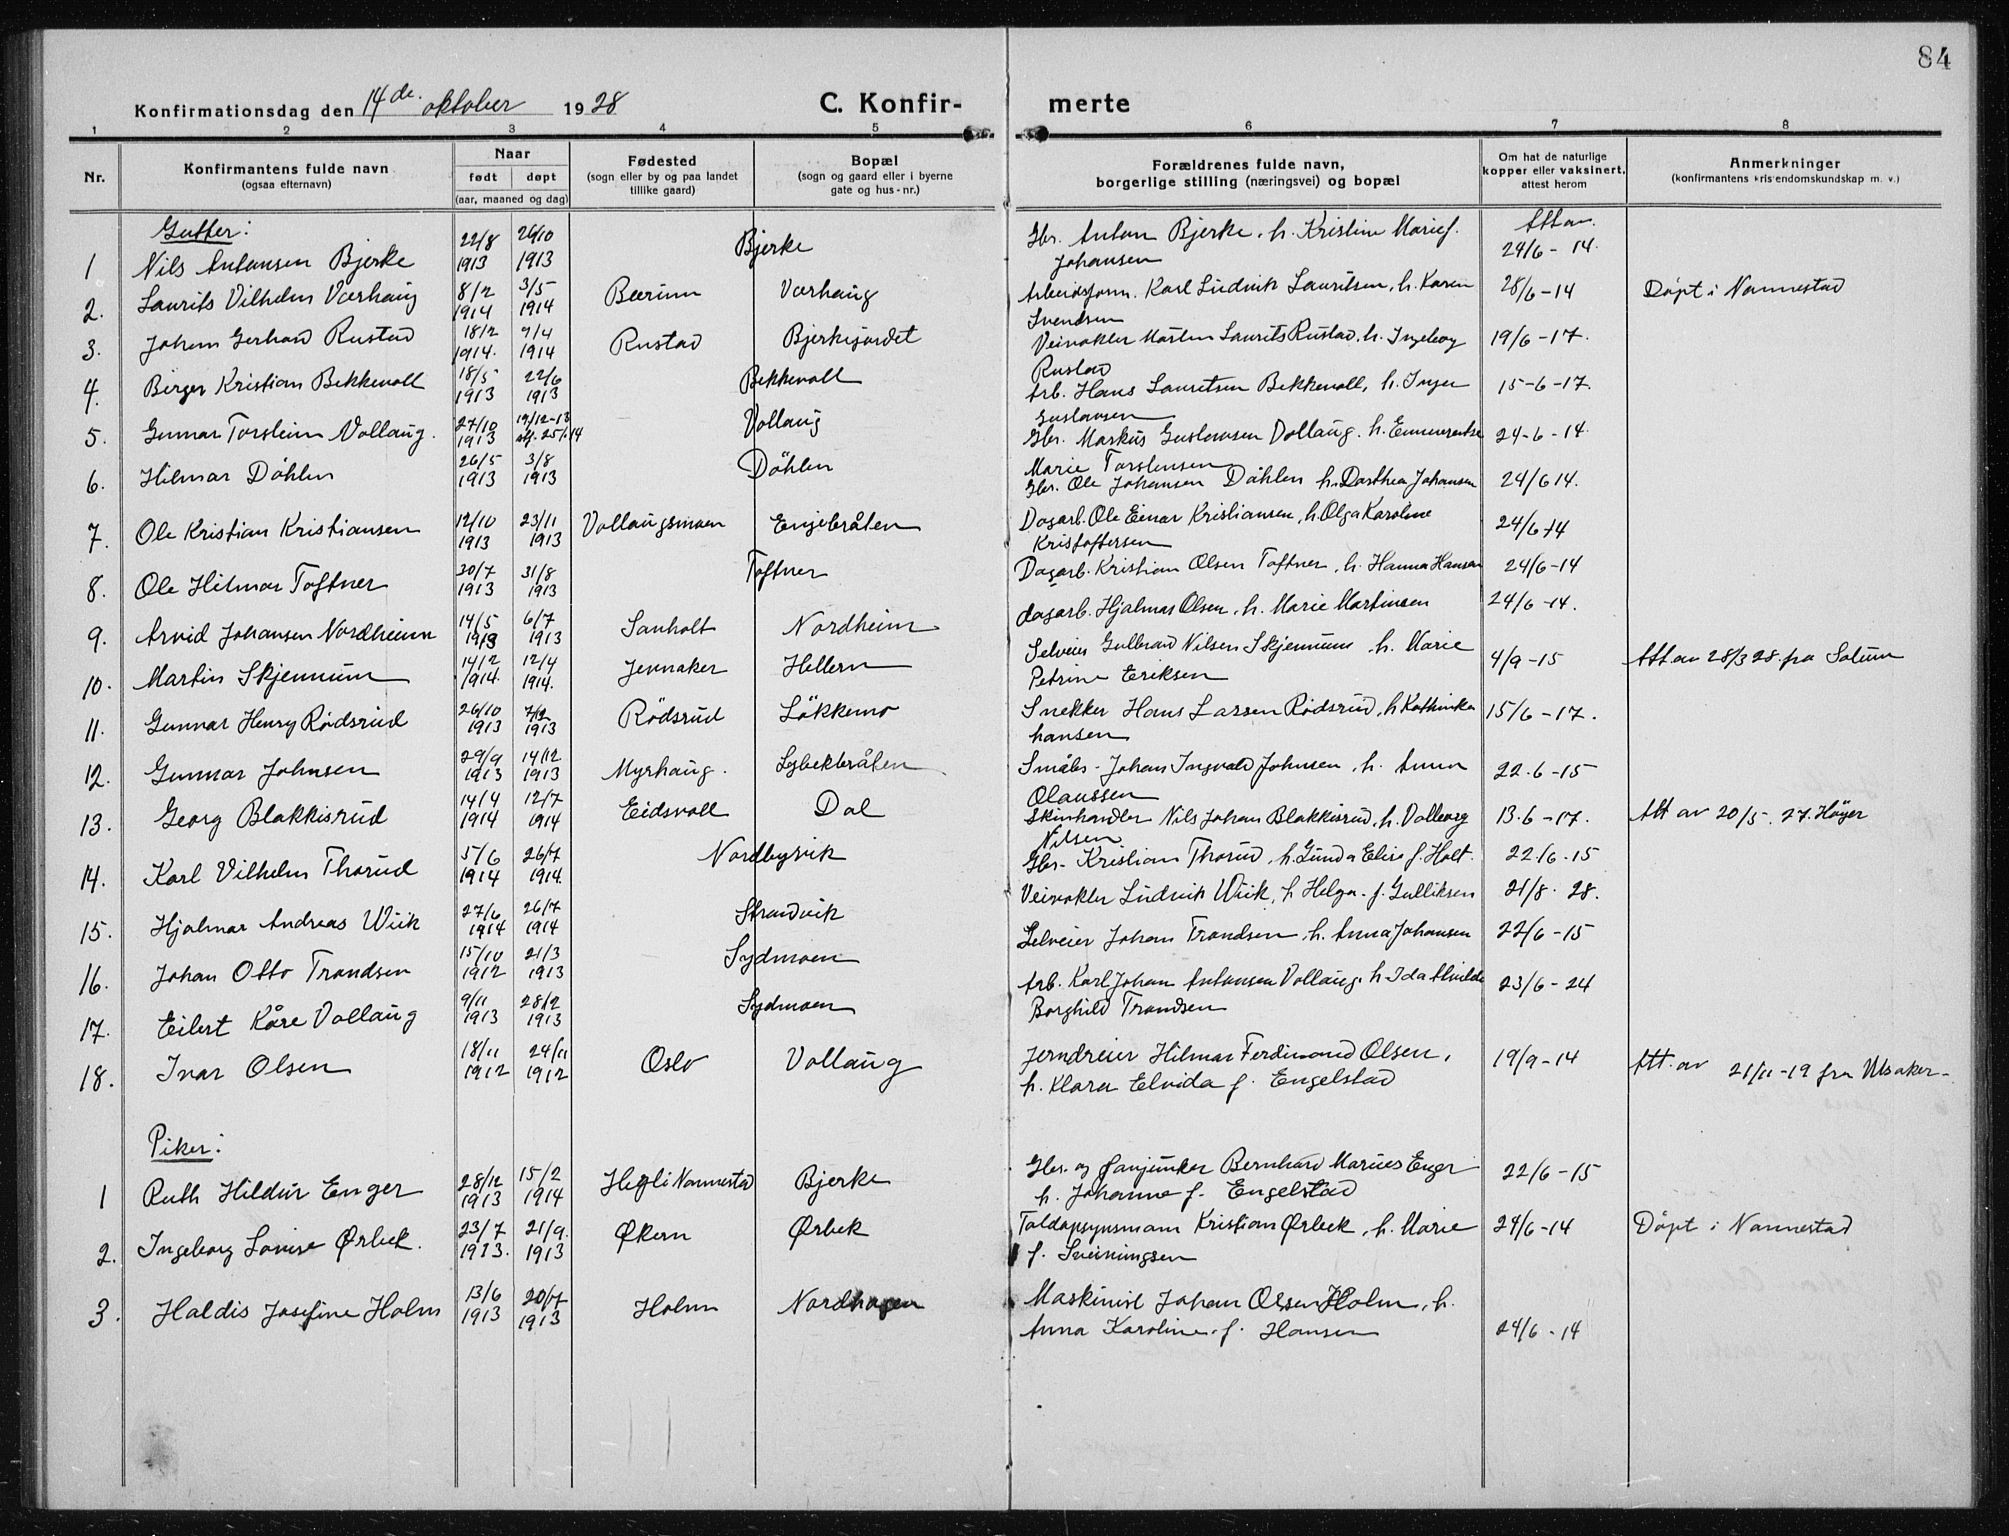 84
Konfirmationsdag den 14de oktober 1928 C. Konfir- merte
1 2 3 4 5 6 7 8
Nr. Konfirmantens fulde navn (ogsaa efternavn) Naar født døpt (aar, maaned og dag) Fødested (sogn eller by og paa landet tillike gaard) Bopæl (sogn og gaard eller i byerne gate og hus-nr.) Forældrenes fulde navn, borgerlige stilling (næringsvei) og bopæl Om hat de naturlige kopper eller vaksinert, attest herom Anmerkninger (konfirmantens kristendomskundskap m. v.)
Gutter:
1 Nils Antonsen Bjerke 22/8 1913 26/10 1913 Bjerke Gbr. Anton Bjerke, h. Kristine Marie f. Johansen Att av. 24/6 - 14.
2. Laurits Vilhelm Værhaug 8/2 1914 3/5 1914 Bærum Værhaug Arbeidsform. Karl Ludvik Lauritsen, h. Karen Svendsen 28/6 - 14 Døpt i Nannestad
3. Johan Gerhard Rustad 18/2 1914. 7/4 1914 Rustad Bjerkejordet Veivokter Morten Laurits Rustad, h. Ingeborg Rustad 19/6 - 17.
4. Birger Kristian Bekkevoll 18/5 1913 22/6 1913 Bekkevoll Arb. Hans Lauritsen Bekkevoll, h. Inger Gustavsen 15-6-17.
5. Gunnar Torstein Vollaug. 27/10 1913 19/12-13 25/1-14 Vollaug Gbr. Markus Gustavsen Vollaug. h. Emmerentse Marie Torstensen 24-6-14.
6. Hilmar Döhlen 26/5 1913 3/8 1913 Döhlen Gbr. Ole Johansen Döhlen h. Dorthea Johansen 24/6 14.
7. Ole Kristian Kristiansen 12/10 1913 23/11 1913 Vollaugsmoen Engebråten Dagarb. Ole Einar Kristiansen, h. Olga Karoline Kristoffersen 24/6 14
8. Ole Hilmar Toftner 30/7 1913 31/8 1913 Toftner Dagarb. Kristian Olsen Toftner, h. Hanna Hansen 24/6-14
9. Arvid Johansen Nordheim 14/5 1913 6/7 1913 Sanholt Nordheim dagarb. Hjalmar Olsen, h. Marie Martinsen 24/6-14.
10. Martin Skjennum 14/2 1914. 12/4 1914. Jevnaker Hellern Selveier Gulbrand Nilsen Skjennum h. Marie Petrine Eriksen 4/9-15 Att. av 28/3 28. fra Solum
11. Gunnar Henry Rödsrud 26/10 1913 7/12 1913 Rödsrud Lökkemo Snekker Hans Larsen Rödsrud, h Kathinka hansen 15/6-17.
12. Gunnar Johnsen 29/9 1913 14/12 1913 Myrhaug. Lybekbråten Småbr. Johan Ingvald Johnsen, h. Anna Olaussen 22.6-15
13. Georg Blakkisrud 14/4 1914 12/7 1914 Eidsvoll Dal Skinhandler Nils Johan Blakkisrud, h. Valborg Nilsen 13.6-17. Att av 20/5. 27. Höyer
14. Karl Vilhelm Thorud 5/6 1914 26/7 1914. Nordbysvik Gbr. Kristian Thorud, h. Gunda Elise f. Holt. 22/6-15
15. Hjalmar Andreas Wiik 27/6 1914 26/7 1914 Strandvik Veivokter Ludvik Wiik, h Helga f. Gulliksen 21/8. 28.
16. Johan Otto Trondsen 15/10 1912 21/3 1913 Sydmoen Selveier Johan Trondsen, h. Anna Johansen 22/6-15
17. Eilert Kåre Vollaug 9/11 1913 28/2 1913 Sydmoen Arb. Karl Johan Antonsen Vollaug, h. Ida Alvilde Borghild Trondsen 23/6-24
18. Ivar Olsen 18/11 1912 24/11 1912 Oslo Vollaug Jerndreier Hilmar Ferdinand Olsen, h. Klara Elvida f. Engelstad 19/9-14 Att. av 21/11-19 fra Ulsaker
Piker:
1 Ruth Hildur Enger 28/12 1913 15/2 1914 Hegli Nannestad Bjerke Gbr. og fanejunker Bernhard Marius Enger h. Johanne f. Engelstad 22/6-15
2. Ingeborg Lovise Ørbek. 23/7 1913. 21/9. 1913 Økern Ørbek Toldopsynsmann Kristian Ørbek, h. Marie f. Sveiningsen 24/6-14 Döpt i Nannestad
3. Haldis Josefine Holm 13/6 1913 20/7 1913 Holm Nordhagen Maskinist Johan Olsen Holm, h. Anna Karoline f. Hansen 24/6-14